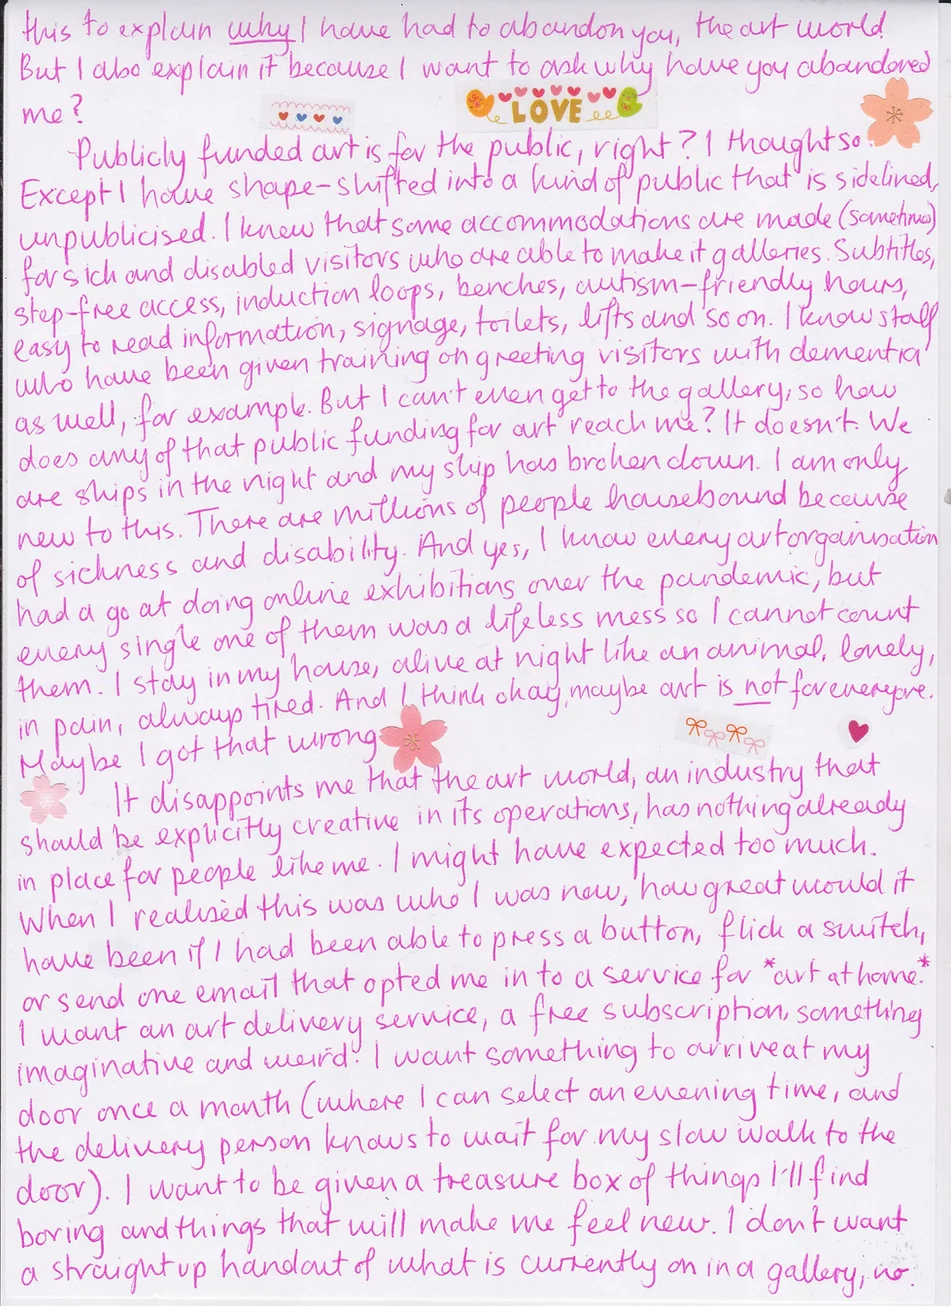 this to explain why I have had to abandon you, the art world.
But I also explain it because I want to ask why have you abandoned
me?
LOVE
Publicly funded art is for the public, right? I thought so.
Except I have shape-shifted into a kind of public that is sidelined,
unpublicised. I know that some accommodations are made (sometimes)
for sick and disabled visitors who are able to make it galleries. Subtitles,
step-free access, induction loops, benches, autism-friendly hours,
easy to read information, signage, toilets, lifts and so on. I know staff
who have been given training on greeting visitors with dementia
as well, for example. But I can't even get to the gallery, so how
does any of that public funding for art reach me? It doesn't. We
are ships in the night and my ship has broken down. I am only
new to this. There are millions of people housebound because
of sickness and disability. And yes, I know every art organisation
had a go at doing online exhibitions over the pandemic, but
every single one of them was a lifeless mess so I cannot count
them. I stay in my house, alive at night like an animal, lonely,
in pain, always tired. And I think okay, maybe art is not for everyone.
Maybe I got that wrong
It disappoints me that the art world, an industry that
should be explicitly creative in its operations, has nothing already
in place for people like me. I might have expected too much.
When I realised this was who I was now, how great would it
have been if I had been able to press a button, flick a switch,
or send one email that opted me in to a service for *art at home.*
I want an art delivery service, a free subscription, something
imaginative and weird. I want something to arrive at my
door once a month (where I can select an evening time, and
the delivery person knows to wait for my slow walk to the
door). I want to be given a treasure box of things I'll find
boring and things that will make me feel new. I don't want
a straight up handout of what is currently on in a gallery, no.